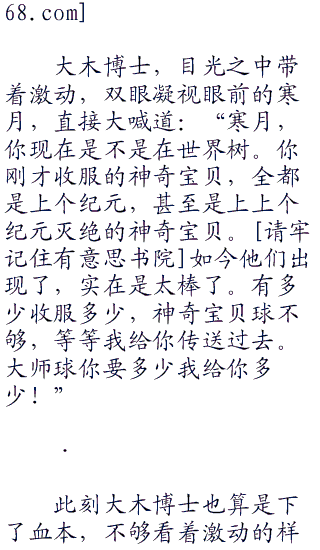 68.com]
大木博士，目光之中带
着激动，双眼凝视眼前的寒
月，直接大喊道：“寒月，
你现在是不是在世界树。你
刚才收服的神奇宝贝，全都
是上个纪元，甚至是上上个
纪元灭绝的神奇宝贝。[请牢
记住有意思书院]如今他们出
现了，实在是太棒了。有多
少收服多少，神奇宝贝球不
够，等等我给你传送过去。
大师球你要多少我给你多
少！”
.
此刻大木博士也算是下
了血本，不够看着激动的样